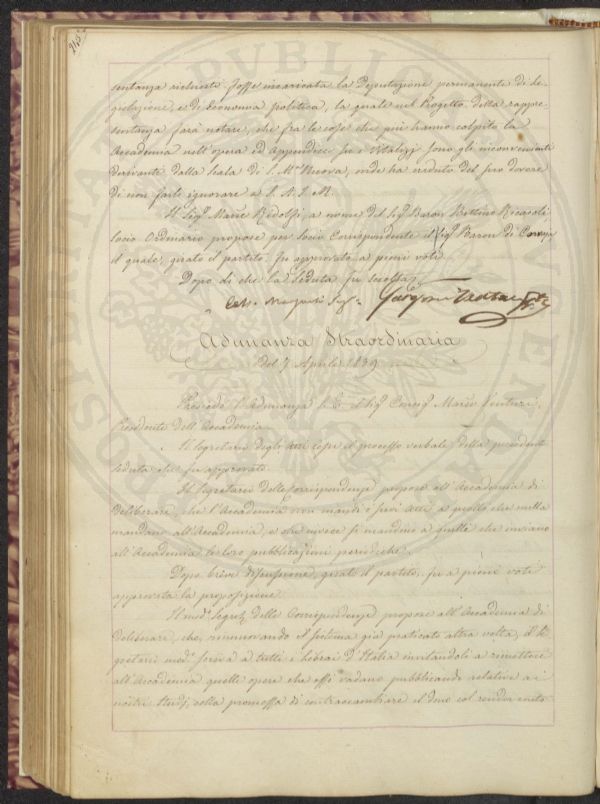 215
sentanza richiesta fosse incaricata la Deputazione permanente di Le-
gislazione, e di Economia politica, la quale nel Progetto della rappre-
sentanza farà notare, che fra le cose che più hanno colpito la
Accademia nell'opera ed Appendice su i Vitalizj sono gli inconvenienti
derivanti dalla scala di S. Mª Nuova, onde ha creduto del suo dovere
di non farli ignorare a S. A. I. R.
Il Sigr. March. Ridolfi, a nome del Sigr. Baron Bettino Ricasoli
Socio Ordinario propose per Socio Corrispondente il Sigr. Baron De
il quale, girato il partito, fu approvato a pieni voti.
Dopo di che la Seduta fu sciolta.
Adunanza Straordinaria
Del 7 Aprile 1839
Presiede l'Adunanza S. E. il Sigr. Consigr. March. Venturi,
Presidente dell'Accademia.
Il Segretario degli Atti lesse il processo verbale della precedente
seduta che fu approvato.
Il Segretario delle Corrispondenze propose all'Accademia di
deliberare, che l'Accademia non mandi i suoi atti a quelli che nulla
mandano all'Accademia, e che invece si mandino a quelli che inviano
all'Accademia le loro pubblicazioni periodiche.
Dopo breve discussione, girato il partito, fu a pieni voti
approvata la proposizione.
Il med. Segret. delle Corrispondenze propose all'Accademia di
deliberare, che, rinnuovando il sistema già praticato altra volta, il Se-
gretario med. scriva a tutti i librai d'Italia invitandoli a rimettere
all'Accademia quelle opere che essi vadano pubblicando relative ai
nostri studj, colla promessa di contraccambiare il dono col render conto